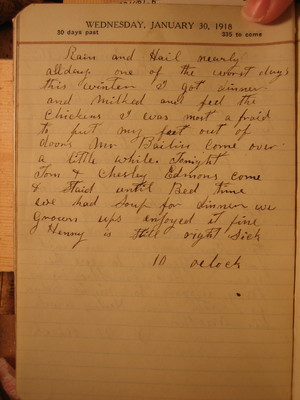 WEDNESDAY, JANUARY 30, 1918
30 days past 335 to come
Rain and Hail nearly
allday one of the worst days
this winter I got dinner
and Milked and feed the
Chickens I was most afraid
to put my feet out of
doors Mr Bailie come over
a little while. Tonight
Tom & Chesley Edmons come
& Staid until Bed time
we had Soup for dinner we
Grown ups enjoyed it fine
Henny is still right Sick
10 oclock